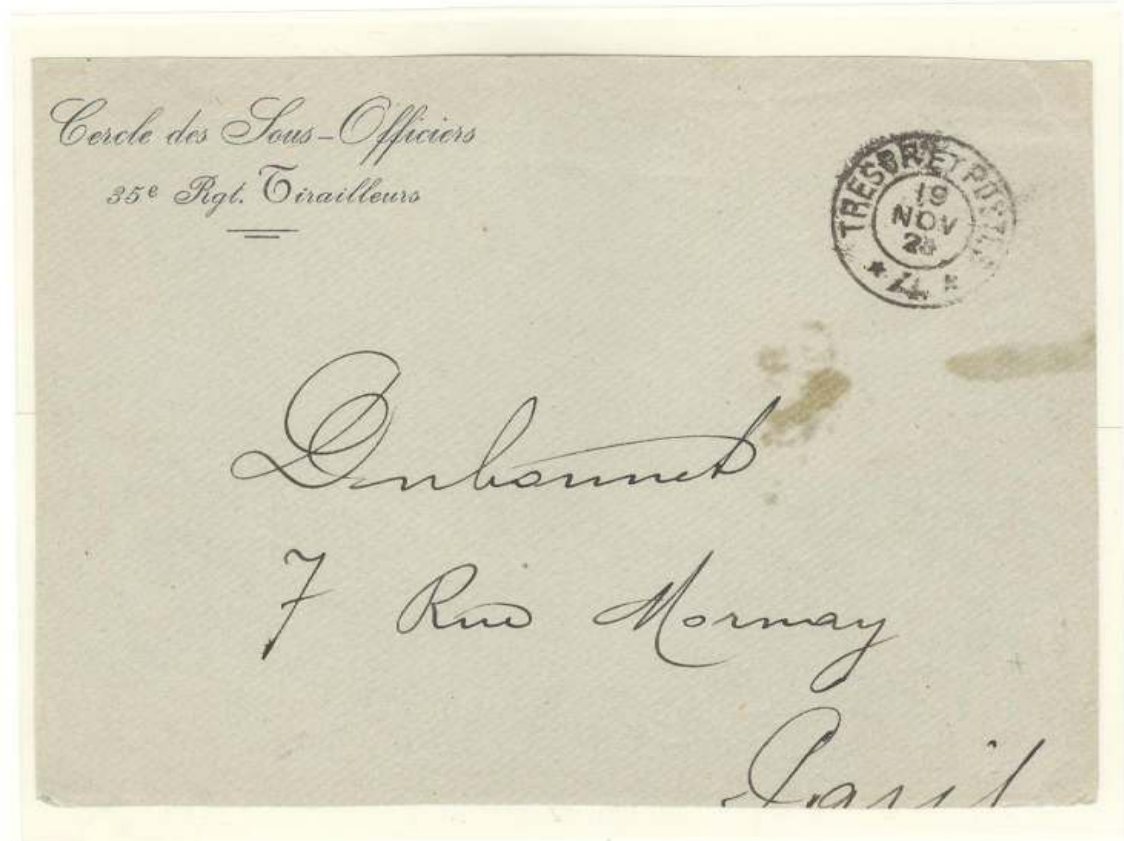 Cercle des Sous-Officiers
35e Rgt. Tirailleurs
TRESOR ET POSTES
19
NOV
* 4 *
Dubonnet
7 Rue Mornay
Paris